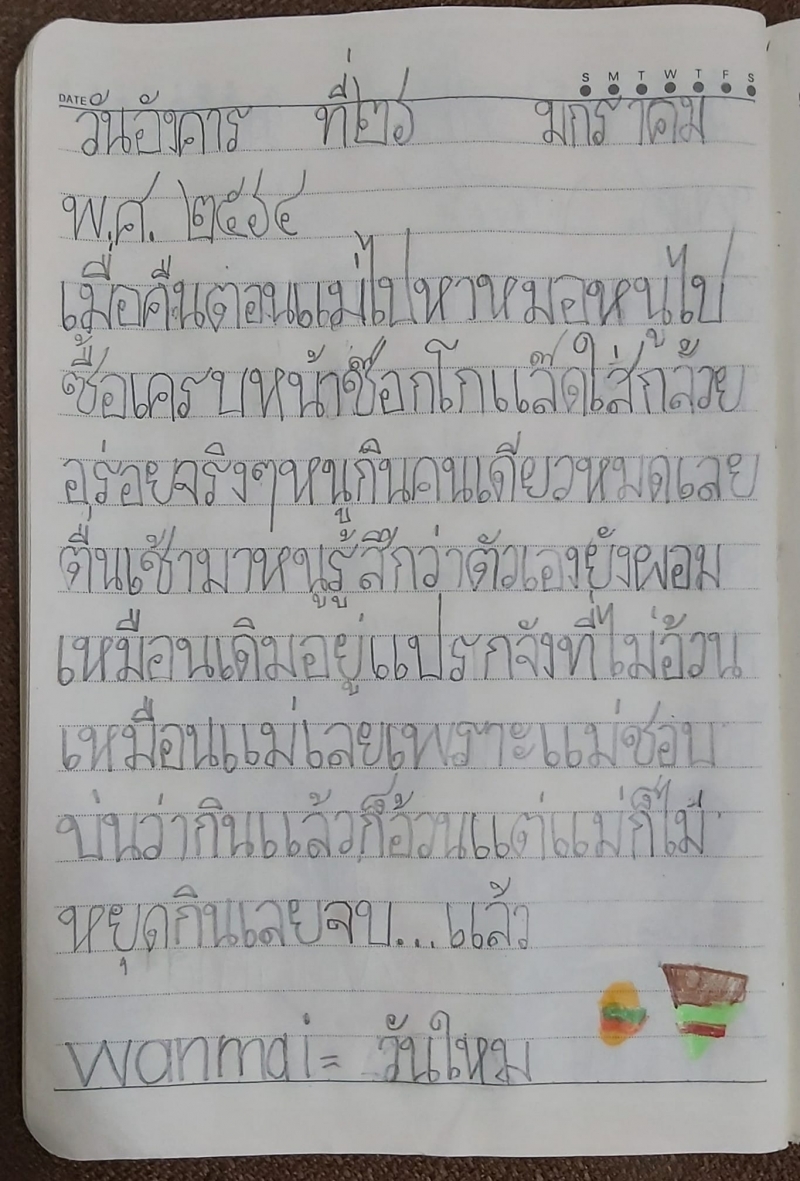 S M T W T F S
DATE
วันอังคาร ที่ ๒๖ มกราคม
พ.ศ. ๒๕๖๔
เมื่อคืนตอนแม่ไปหาหมอหนูไป
ซื้อเครบหน้าช๊อกโกแล๊ดใส่กล้วย
อร่อยจริงๆหนูกินคนเดียวหมดเลย
ตื่นเช้ามาหนูรู้สึกว่าตัวเองยังผอม
เหมือนเดิมอยู่แปรกจังที่ไม่อ้วน
เหมือนแม่เลยเพราะแม่ชอบ
บ่นว่ากินแล้วก็อ้วนแต่แม่ก็ไม่
หยุดกินเลยจบ...แล้ว
wanmai= วันใหม